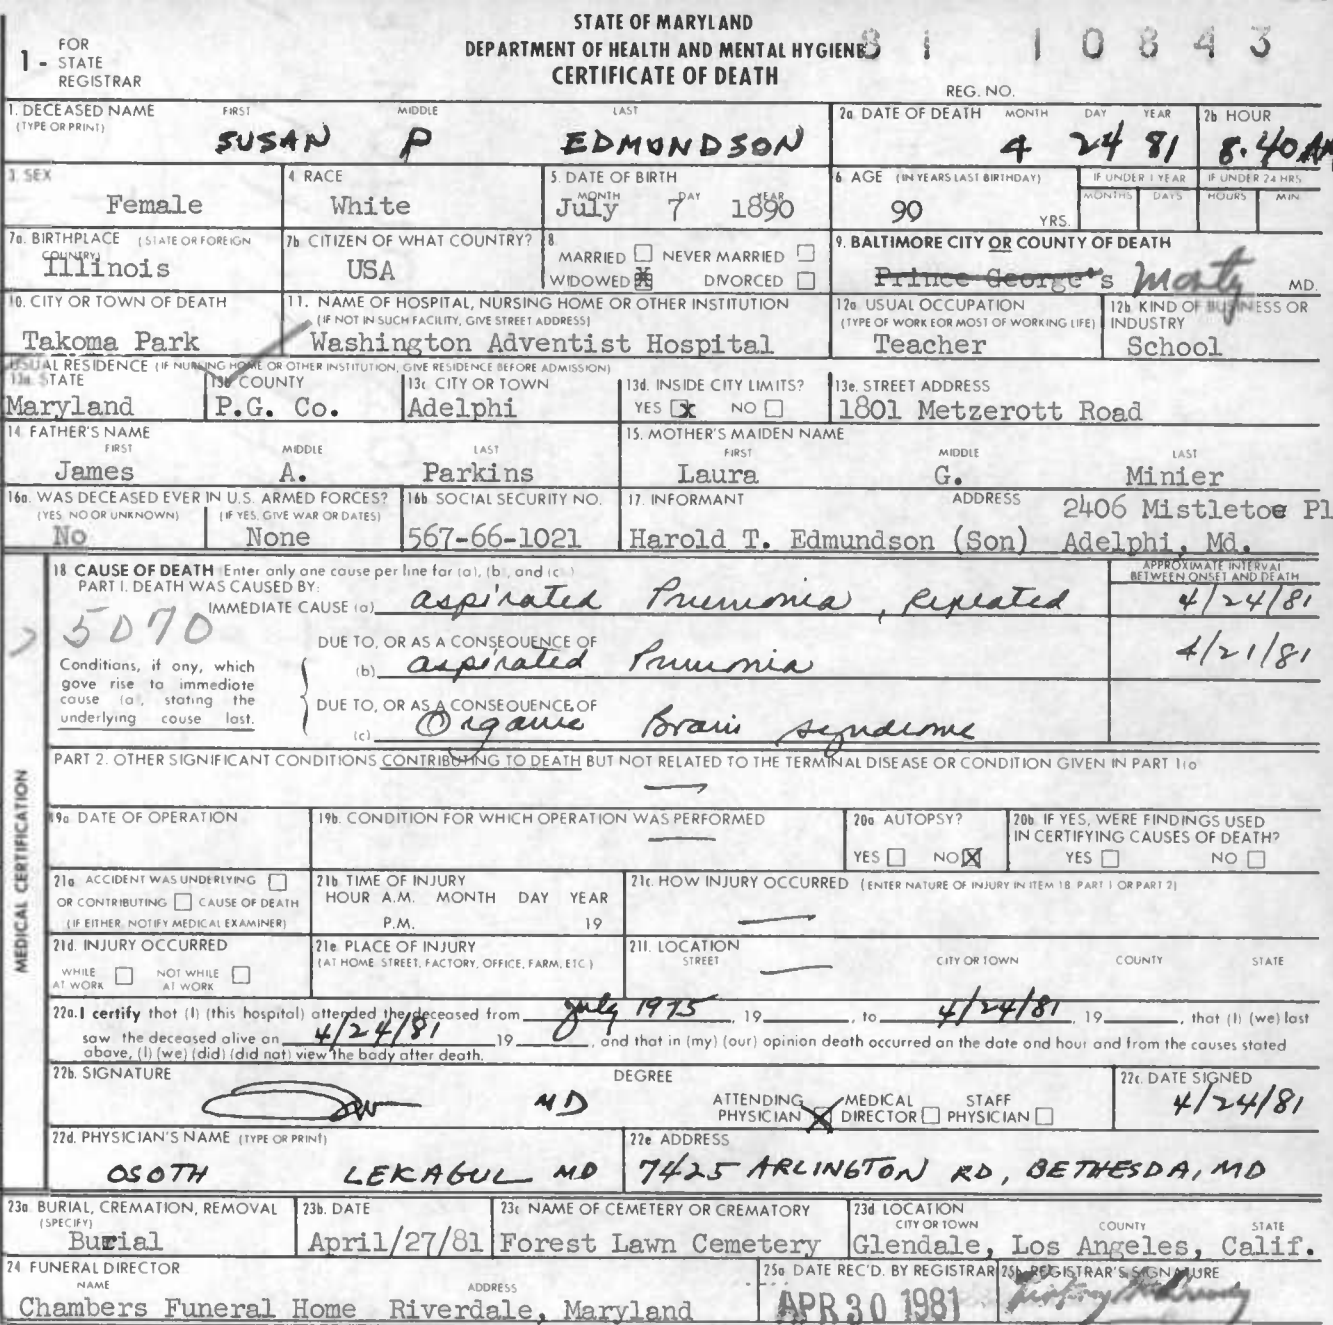 STATE OF MARYLAND
DEPARTMENT OF HEALTH AND MENTAL HYGIENE
CERTIFICATE OF DEATH
1 - FOR STATE REGISTRAR
81 10843
REG. NO.
1. DECEASED NAME (TYPE OR PRINT) FIRST MIDDLE LAST
SUSAN P EDMUNDSON
2a. DATE OF DEATH MONTH DAY YEAR
4 24 81
2b. HOUR
8.40 AM
3. SEX
Female
4. RACE
White
5. DATE OF BIRTH MONTH DAY YEAR
July 7 1890
6. AGE (IN YEARS LAST BIRTHDAY)
90 YRS.
IF UNDER 1 YEAR MONTHS DAYS
IF UNDER 24 HRS HOURS MIN.
7a. BIRTHPLACE (STATE OR FOREIGN COUNTRY)
Illinois
7b. CITIZEN OF WHAT COUNTRY?
USA
8. MARRIED NEVER MARRIED
WIDOWED X DIVORCED
9. BALTIMORE CITY OR COUNTY OF DEATH
Prince George's Monty MD.
10. CITY OR TOWN OF DEATH
Takoma Park
11. NAME OF HOSPITAL, NURSING HOME OR OTHER INSTITUTION
(IF NOT IN SUCH FACILITY, GIVE STREET ADDRESS)
Washington Adventist Hospital
12a. USUAL OCCUPATION
(TYPE OF WORK FOR MOST OF WORKING LIFE)
Teacher
12b. KIND OF BUSINESS OR INDUSTRY
School
USUAL RESIDENCE (IF NURSING HOME OR OTHER INSTITUTION, GIVE RESIDENCE BEFORE ADMISSION)
13a. STATE
Maryland
13b. COUNTY
P.G. Co.
13c. CITY OR TOWN
Adelphi
13d. INSIDE CITY LIMITS?
YES X NO
13e. STREET ADDRESS
1801 Metzerott Road
14. FATHER'S NAME FIRST MIDDLE LAST
James A. Parkins
15. MOTHER'S MAIDEN NAME FIRST MIDDLE LAST
Laura G. Minier
16a. WAS DECEASED EVER IN U.S. ARMED FORCES?
(YES, NO OR UNKNOWN) (IF YES, GIVE WAR OR DATES)
No None
16b. SOCIAL SECURITY NO.
567-66-1021
17. INFORMANT ADDRESS
2406 Mistletoe Pl
Harold T. Edmundson (Son) Adelphi, Md.
MEDICAL CERTIFICATION
18. CAUSE OF DEATH (Enter only one cause per line for (a), (b), and (c).)
PART 1. DEATH WAS CAUSED BY:
APPROXIMATE INTERVAL BETWEEN ONSET AND DEATH
IMMEDIATE CAUSE (a) aspirated Pneumonia, repeated 4/24/81
5070
DUE TO, OR AS A CONSEQUENCE OF
(b) aspirated Pneumonia 4/21/81
Conditions, if any, which gave rise to immediate cause (a), stating the underlying cause last.
DUE TO, OR AS A CONSEQUENCE OF
(c) Organic Brain syndrome
PART 2. OTHER SIGNIFICANT CONDITIONS CONTRIBUTING TO DEATH BUT NOT RELATED TO THE TERMINAL DISEASE OR CONDITION GIVEN IN PART 1(a)
19a. DATE OF OPERATION
19b. CONDITION FOR WHICH OPERATION WAS PERFORMED
20a. AUTOPSY?
YES NO X
20b. IF YES, WERE FINDINGS USED IN CERTIFYING CAUSES OF DEATH?
YES NO
21a. ACCIDENT WAS UNDERLYING
OR CONTRIBUTING CAUSE OF DEATH
(IF EITHER, NOTIFY MEDICAL EXAMINER)
21b. TIME OF INJURY
HOUR A.M. MONTH DAY YEAR
P.M. 19
21c. HOW INJURY OCCURRED (ENTER NATURE OF INJURY IN ITEM 18, PART 1 OR PART 2)
21d. INJURY OCCURRED
WHILE AT WORK NOT WHILE AT WORK
21e. PLACE OF INJURY
(AT HOME, STREET, FACTORY, OFFICE, FARM, ETC.)
21f. LOCATION
STREET CITY OR TOWN COUNTY STATE
22a. I certify that (I) (this hospital) attended the deceased from July 1975, 19 , to 4/24/81, 19 , that (I) (we) last
saw the deceased alive on 4/24/81 19 , and that in (my) (our) opinion death occurred on the date and hour and from the causes stated
above, (I) (we) (did) (did not) view the body after death.
22b. SIGNATURE DEGREE
MD
ATTENDING PHYSICIAN X MEDICAL DIRECTOR STAFF PHYSICIAN
22c. DATE SIGNED
4/24/81
22d. PHYSICIAN'S NAME (TYPE OR PRINT)
OSOTH LEKAGUL MD
22e. ADDRESS
7425 ARLINGTON RD, BETHESDA, MD
23a. BURIAL, CREMATION, REMOVAL (SPECIFY)
Burial
23b. DATE
April/27/81
23c. NAME OF CEMETERY OR CREMATORY
Forest Lawn Cemetery
23d. LOCATION
CITY OR TOWN COUNTY STATE
Glendale, Los Angeles, Calif.
24. FUNERAL DIRECTOR
NAME ADDRESS
Chambers Funeral Home Riverdale, Maryland
25a. DATE REC'D. BY REGISTRAR
APR 30 1981
25b. REGISTRAR'S SIGNATURE